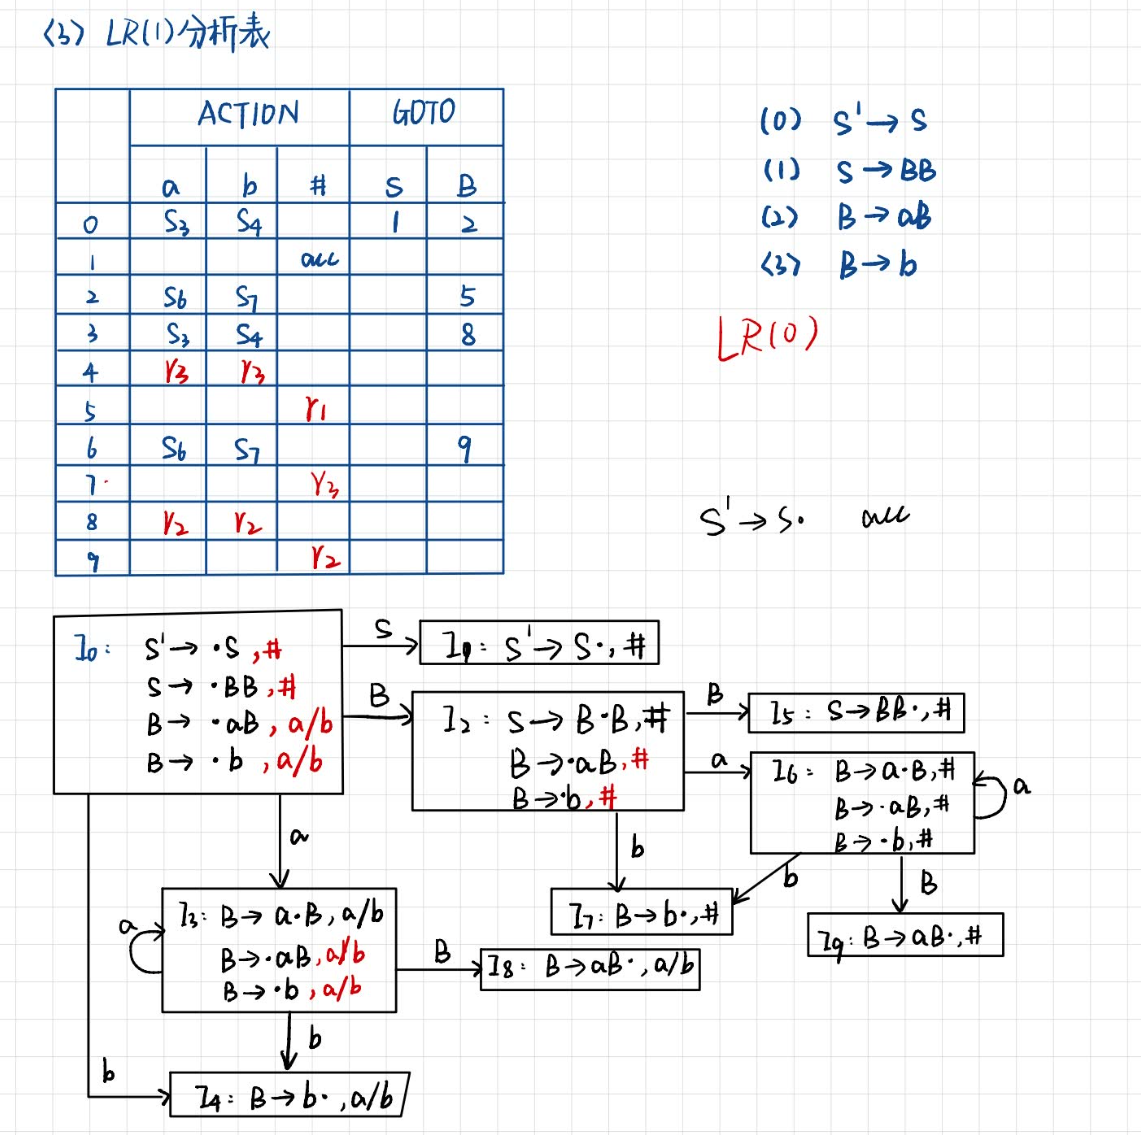 <3> LR(1)分析表
ACTION GOTO
a b # S B
0 S3 S4 1 2
1 acc
2 S6 S7 5
3 S3 S4 8
4 r3 r3
5 r1
6 S6 S7 9
7 r3
8 r2 r2
9 r2
(0) S'→S
(1) S→BB
(2) B→aB
<3> B→b
LR(0)
S'→S· acc
I0: S'→·S,#
S→·BB,#
B→·aB,a/b
B→·b,a/b
S
I1: S'→S·,#
B
I2: S→B·B,#
B→·aB,#
B→·b,#
B
I5: S→BB·,#
a
I6: B→a·B,#
B→·aB,#
B→·b,#
a
a
b
b
B
I3: B→a·B,a/b
B→·aB,a/b
B→·b,a/b
a
B
I7: B→b·,#
I9: B→aB·,#
I8: B→aB·,a/b
b
b
I4: B→b·,a/b